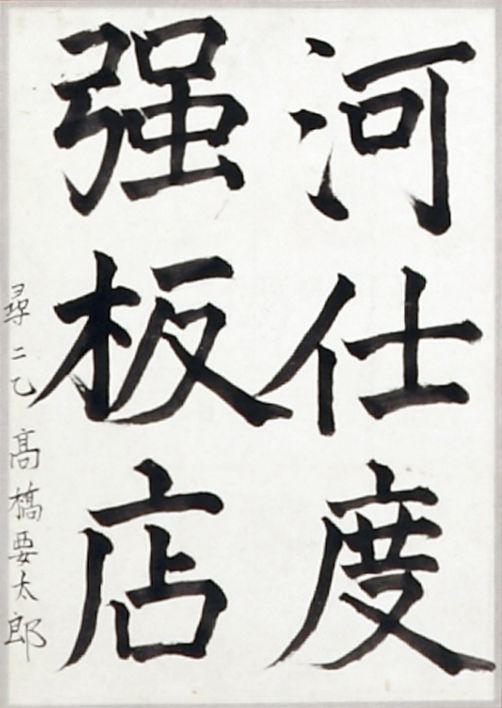 河仕度
强板店
尋二乙 髙橋要太郎